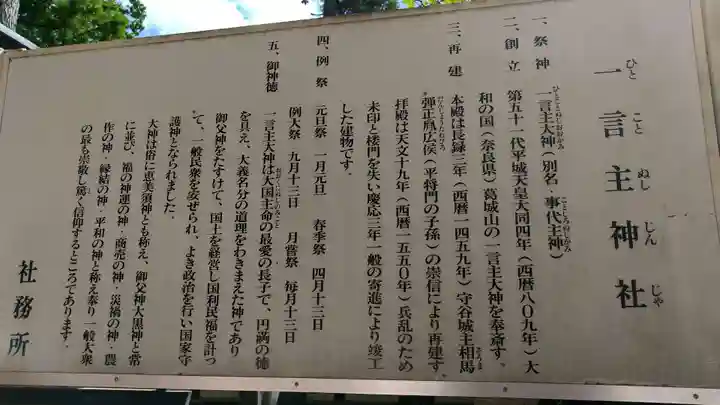 一言主神社
ひとことぬしじんじゃ
一、祭神　一言主大神（別名・事代主神）
ひとことぬしおおかみ　ことしろぬしがみ
二、創立　第五十一代平城天皇大同四年（西暦八〇九年）大
和の国（奈良県）葛城山の一言主大神を奉斎す。
三、再建　本殿は長録三年（西暦一四五九年）守谷城主相馬
そうま
弾正胤広侯（平将門の子孫）の崇信により再建す。
拝殿は天文十九年（西暦一五五〇年）兵乱のため
未印と楼門を失い慶応三年一般の寄進により竣工
した建物です。
四、例祭　元旦祭　一月元旦　春季祭　四月十三日
例大祭　九月十三日　月嘗祭　毎月十三日
五、御神徳　一言主大神は大国主命の最愛の長子で、円満の徳
おおくにぬしのみこと
を具え、大義名分の道理をわきまえた神であり
御父神をたすけて、国土を経営し国利民福を計っ
て、一般民衆を安ぜられ、よき政治を行い国家守
護神となられました。
大神は俗に恵美須神とも称え、御父神大黒神と常
に並び、福の神運の神・商売の神・災禍の神・農
作の神・縁結の神・平和の神と称え奉り一般大衆
の最も崇敬し篤く信仰するところであります。
社務所